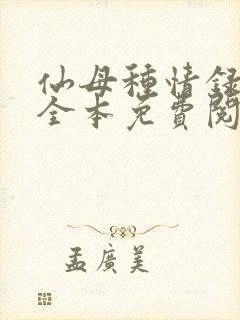 仙母種情録
全本免費閱
孟廣美